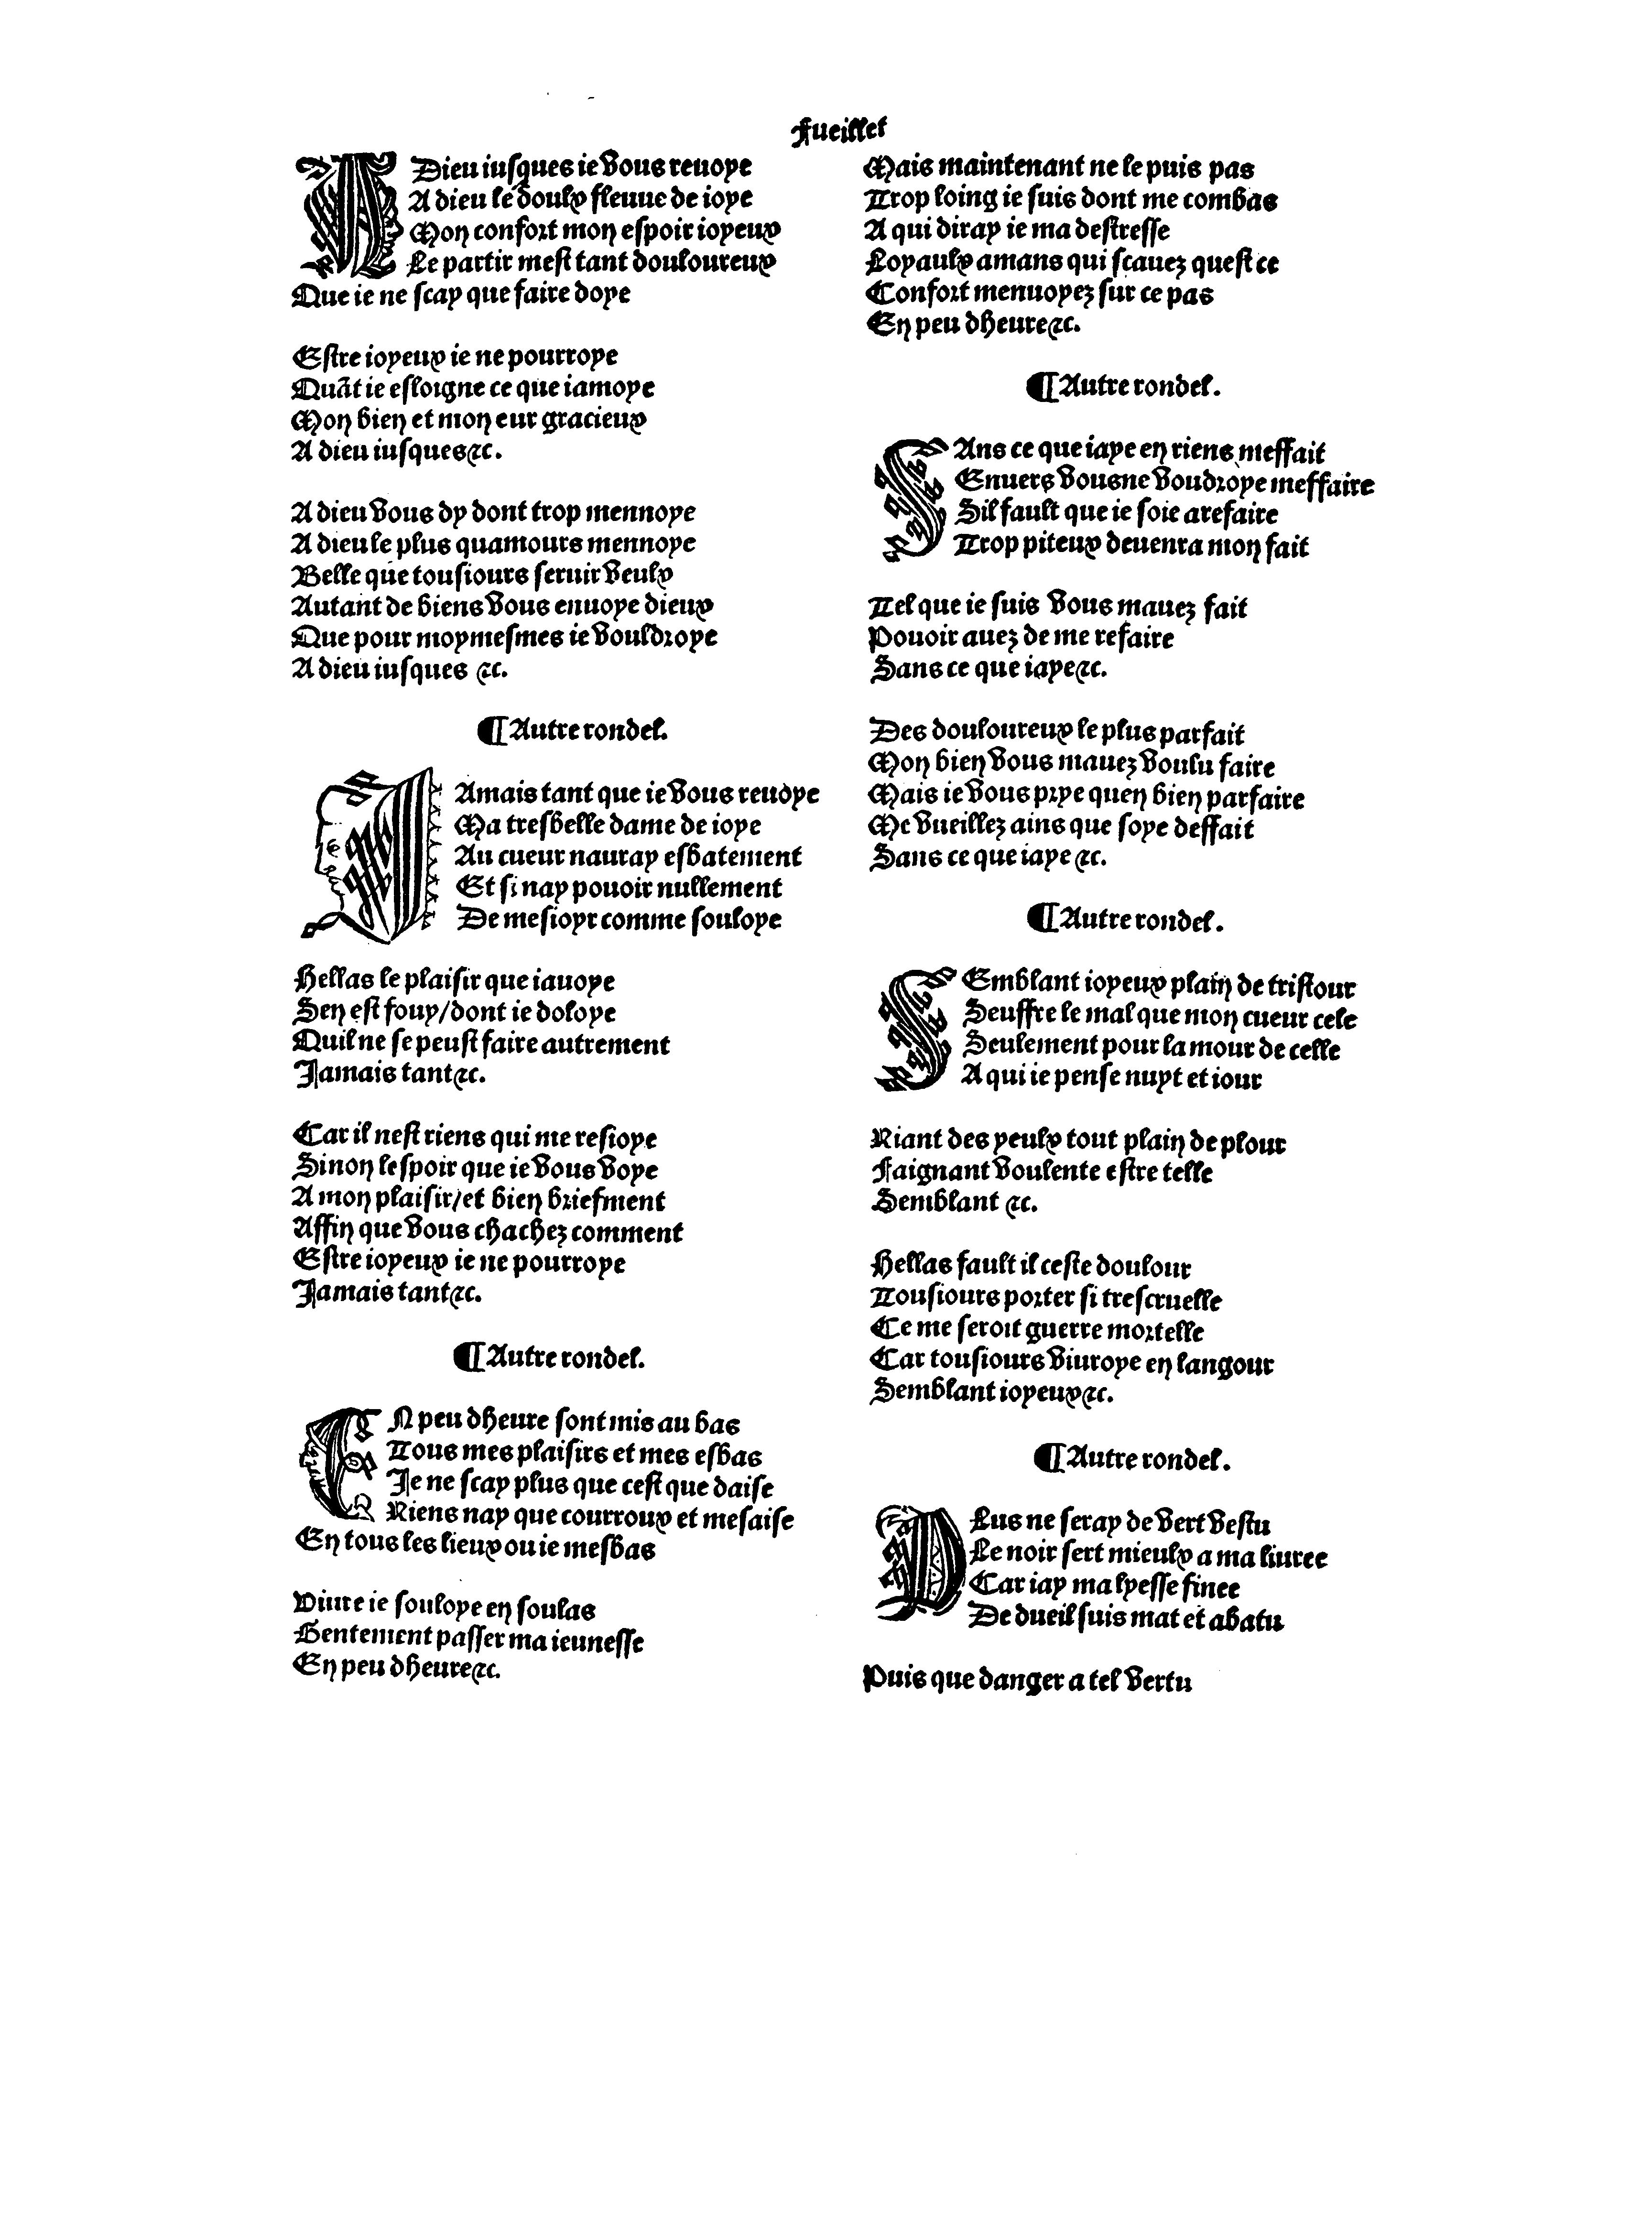 Fueillet
ADieu iusques ie vous reuoye
A dieu le doulx fleuue de ioye
Mon confort mon espoir ioyeux
Le partir mest tant douloureux
Que ie ne scay que faire doye
Estre ioyeux ie ne pourroye
Quãt ie esloigne ce que iamoye
Mon bien et mon eur gracieux
A dieu iusques &c.
A dieu vous dy dont trop mennoye
A dieu le plus quamours mennoye
Belle que tousiours seruir veulx
Autant de biens vous enuoye dieux
Que pour moymesmes ie vouldroye
A dieu iusques &c.
¶ Autre rondel.
IAmais tant que ie vous reuoye
Ma tresbelle dame de ioye
Au cueur nauray esbatement
Et si nay pouoir nullement
De mesioyr comme souloye
Hellas le plaisir que iauoye
Sen est fouy/dont ie doloye
Quil ne se peust faire autrement
Jamais tant &c.
Car il nest riens qui me resioye
Sinon lespoir que ie vous voye
A mon plaisir/et bien briefment
Affin que vous chachez comment
Estre ioyeux ie ne pourroye
Jamais tant &c.
¶ Autre rondel.
EN peu dheure sont mis au bas
Tous mes plaisirs et mes esbas
Je ne scay plus que cest que daise
Riens nay que courroux et mesaise
En tous les lieux ou ie mesbas
Viure ie souloye en soulas
Gentement passer ma ieunesse
En peu dheure &c.
Mais maintenant ne le puis pas
Trop loing ie suis dont me combas
A qui diray ie ma destresse
Loyaulx amans qui scauez quest ce
Confort menuoyez sur ce pas
En peu dheure &c.
¶ Autre rondel.
SAns ce que iaye en riens meffait
Enuers vous ne voudroye meffaire
Sil fault que ie soie arefaire
Trop piteux deuenra mon fait
Tel que ie suis vous mauez fait
Pouoir auez de me refaire
Sans ce que iaye &c.
Des douloureux le plus parfait
Mon bien vous mauez voulu faire
Mais ie vous prye quen bien parfaire
Me vueillez ains que soye deffait
Sans ce que iaye &c.
¶ Autre rondel.
SEmblant ioyeux plain de tristour
Seuffre le mal que mon cueur cele
Seulement pour lamour de celle
A qui ie pense nuyt et iour
Riant des yeulx tout plain de plour
Faignant voulente estre telle
Semblant &c.
Hellas fault il ceste doulour
Tousiours porter si trescruelle
Ce me seroit guerre mortelle
Car tousiours viuroye en langour
Semblant ioyeux &c.
¶ Autre rondel.
PLus ne seray de vert vestu
Le noir sert mieulx a ma liuree
Car iay ma lyesse finee
De dueil suis mat et abatu
Puis que danger a tel vertu